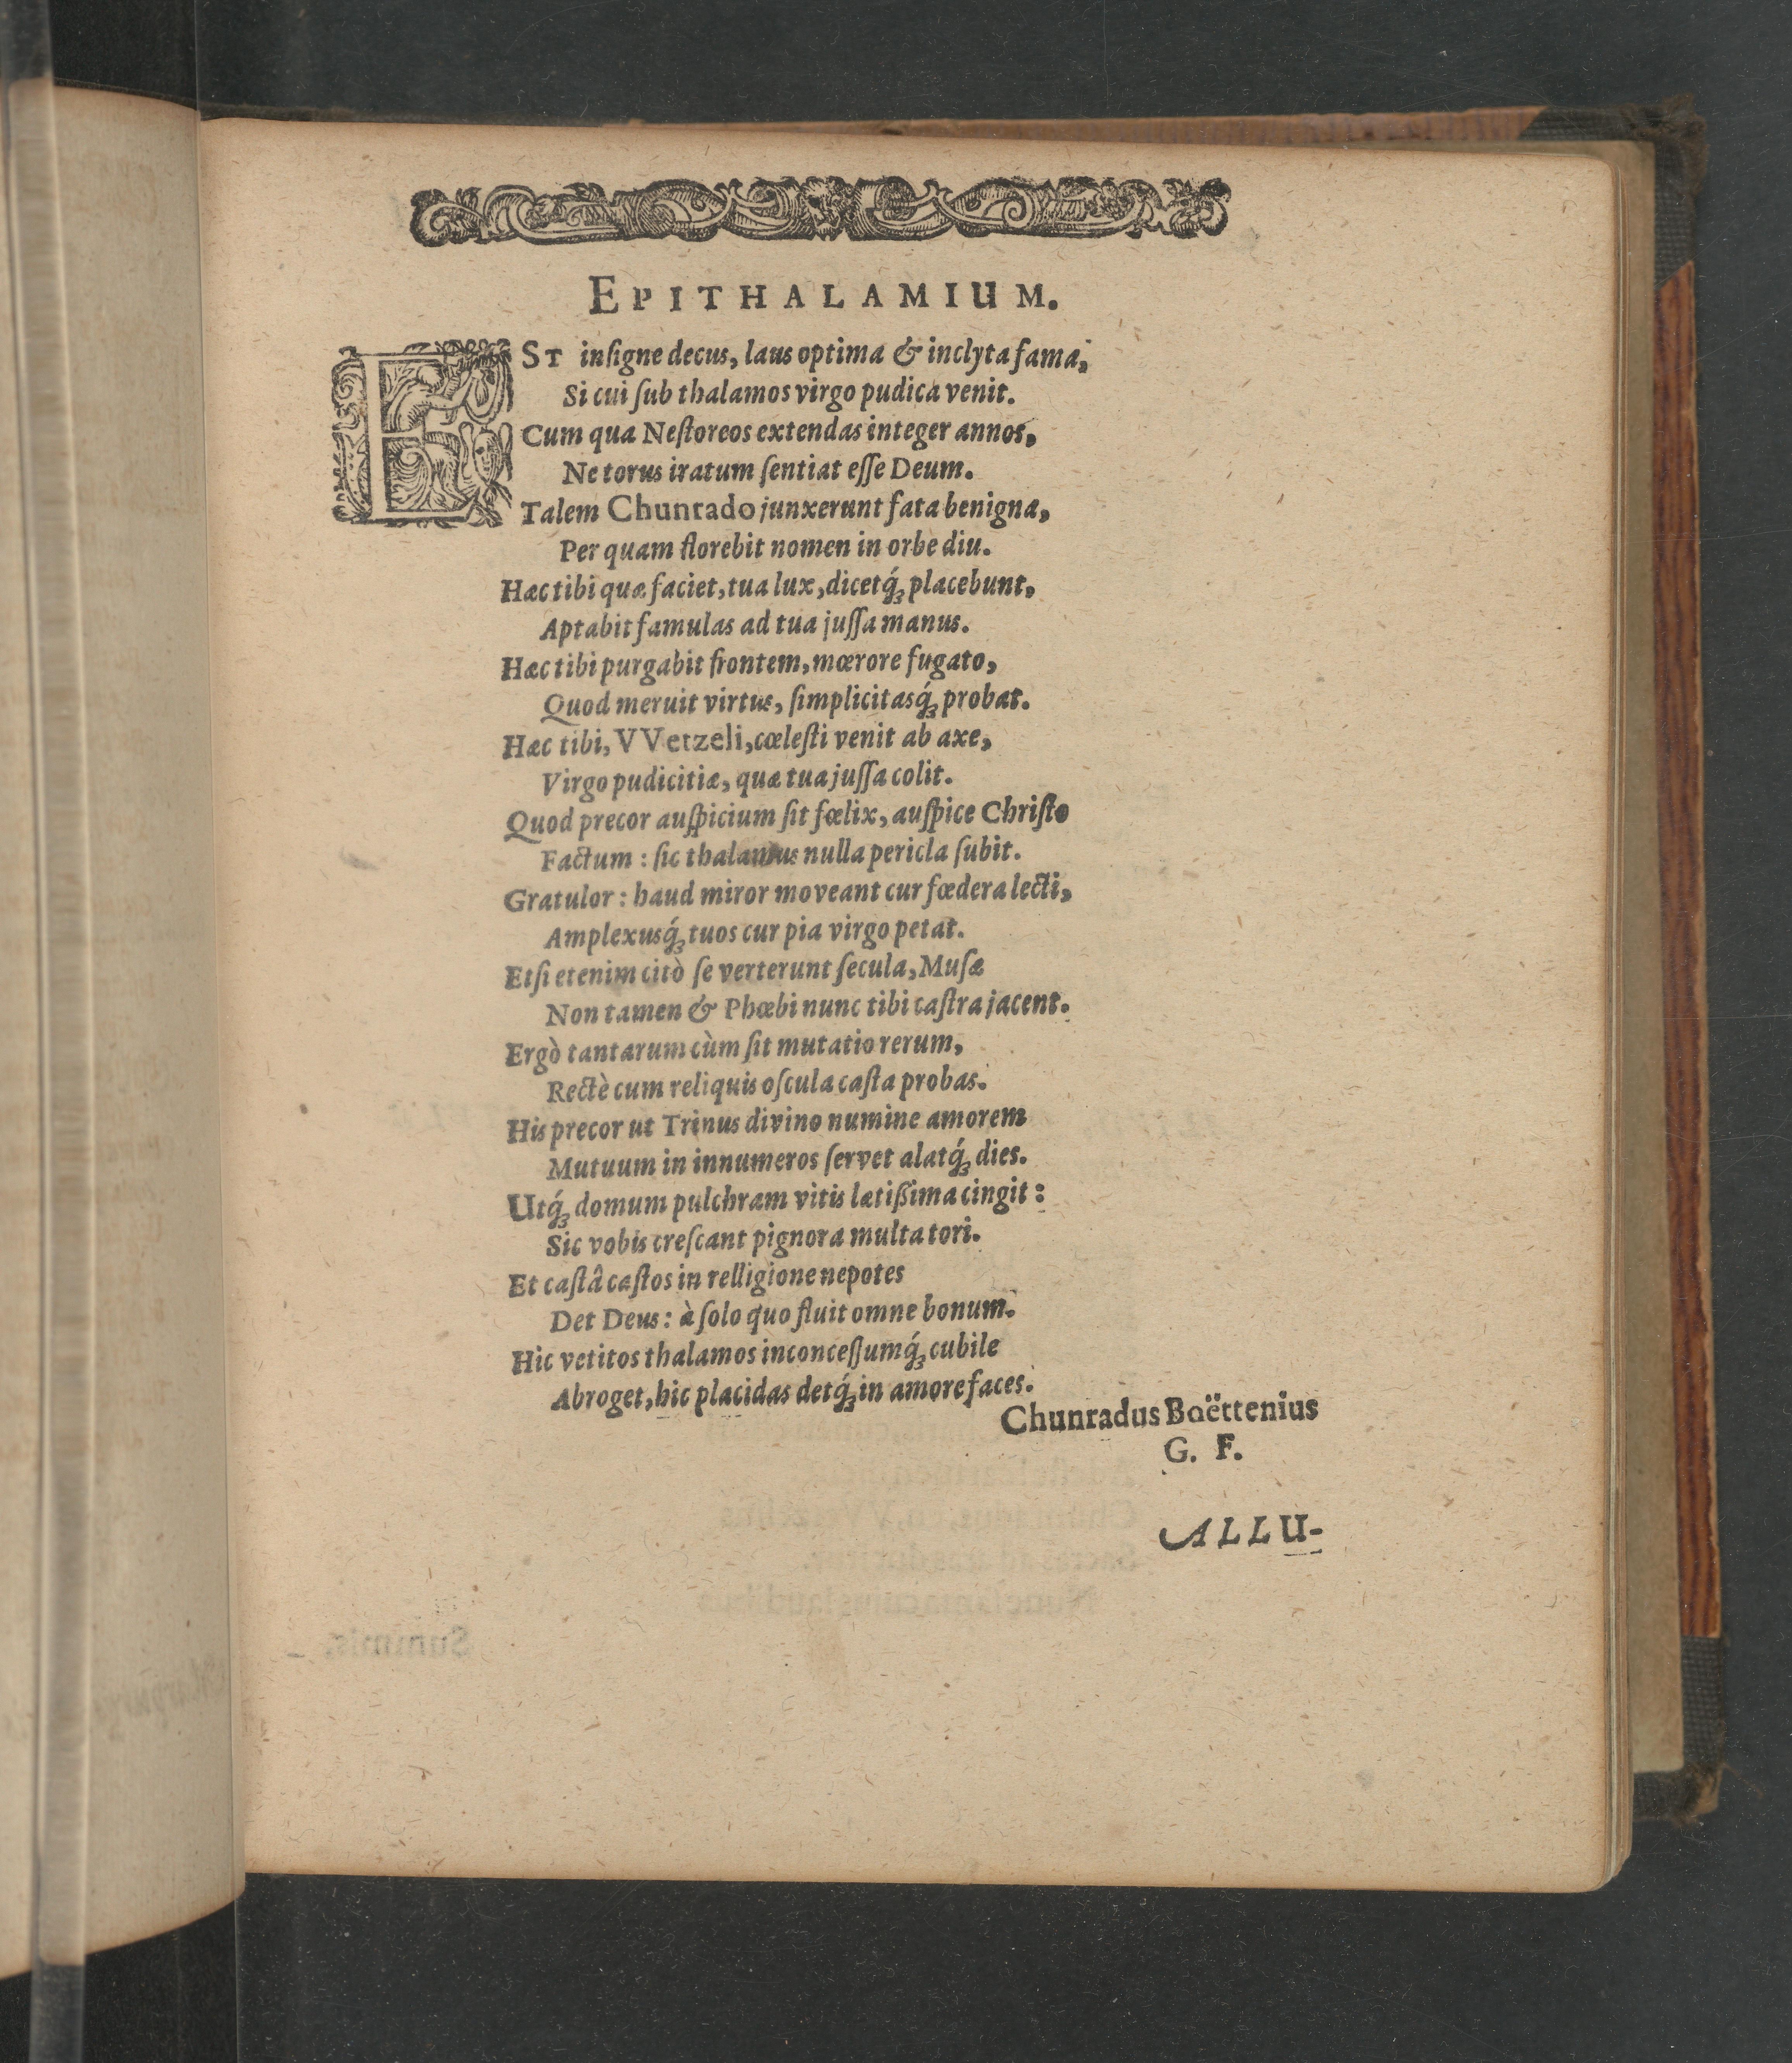 EPITHALAMIUM.
EST inſigne decus, laus optima & inclyta fama,
Si cui ſub thalamos virgo pudica venit.
Cum qua Neſtoreos extendas integer annos,
Ne torus iratum ſentiat eſſe Deum.
Talem Chunrado junxerunt fata benigna,
Per quam florebit nomen in orbe diu.
Hæc tibi quæ faciet, tua lux, dicetq́ꝫ placebunt,
Aptabit famulas ad tua juſſa manus.
Hæc tibi purgabit frontem, mœrore fugato,
Quod meruit virtus, ſimplicitasq́ꝫ probat.
Hæc tibi, VVetzeli, cœleſti venit ab axe,
Virgo pudicitiæ, quæ tua juſſa colit.
Quod precor auſpicium ſit fœlix, auſpice Chriſto
Factum : ſic thalamus nulla pericla ſubit.
Gratulor : haud miror moveant cur fœdera lecti,
Amplexusq́ꝫ tuos cur pia virgo petat.
Etſi etenim citò ſe verterunt ſecula, Muſæ
Non tamen & Phœbi nunc tibi caſtra jacent.
Ergò tantarum cùm ſit mutatio rerum,
Rectè cum reliquis oſcula caſta probas.
His precor ut Trinus divino numine amorem
Mutuum in innumeros ſervet alatq́ꝫ dies.
Utq́ꝫ domum pulchram vitis lætißima cingit :
Sic vobis creſcant pignora multa tori.
Et caſtâ caſtos in relligione nepotes
Det Deus : à ſolo quo fluit omne bonum.
Hic vetitos thalamos inconceſſumq́ꝫ cubile
Abroget, hic placidas detq́ꝫ in amore faces.
Chunradus Boëttenius
G. F.
ALLU-